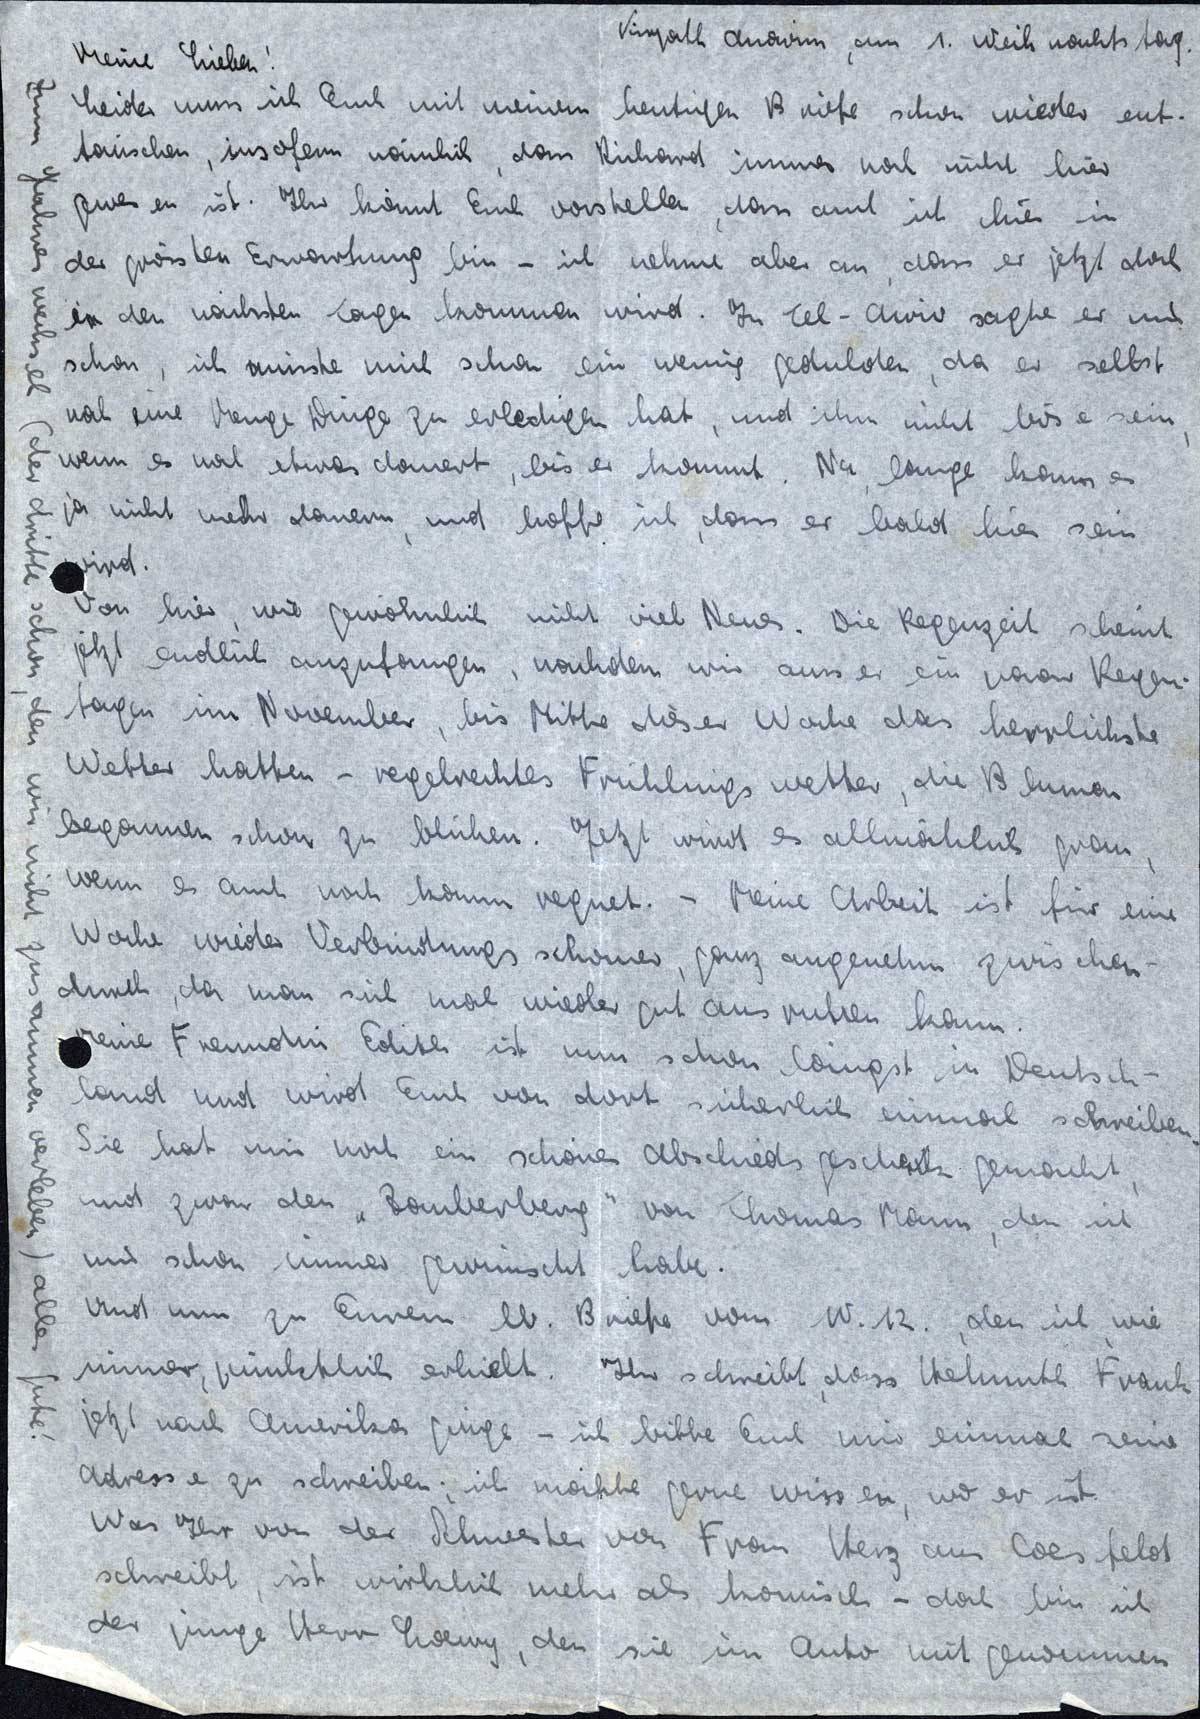 Kirjath Anavim, am 1. Weihnachtstag.
Meine Lieben!
Leider muss ich Euch mit meinem heutigen Briefe schon wieder ent-
täuschen, insofern nämlich, dass Richard immer noch nicht hier
gewesen ist. Ihr könnt Euch vorstellen, dass auch ich hier in
der grössten Erwartung bin - ich nehme aber an, dass er jetzt doch
in den nächsten Tagen kommen wird. In Tel-Awiw sagte er mir
schon, ich müsste mich schon ein wenig gedulden, da er selbst
noch eine Menge Dinge zu erledigen hat, und ihm nicht böse sein,
wenn es noch etwas dauert, bis er kommt. Na, lange kann es
ja nicht mehr dauern, und hoffe ich, dass er bald hier sein
wird.
Von hier, wie gewöhnlich nicht viel Neues. Die Regenzeit scheint
jetzt endlich anzufangen, nachdem wir ausser ein paar Regen-
tagen im November, bis Mitte dieser Woche das herrlichste
Wetter hatten - regelrechtes Frühlingswetter, die Blumen
begannen schon zu blühen. Jetzt wird es allmählich grau,
wenn es auch noch kaum regnet. - Meine Arbeit ist für eine
Woche wieder Verbindungsschomer, ganz angenehm zwischen-
durch, da man sich mal wieder gut ausruhen kann.
Meine Freundin Edith ist nun schon längst in Deutsch-
land und wird Euch von dort sicherlich einmal schreiben.
Sie hat mir noch ein schönes Abschiedsgeschenk gemacht,
und zwar den „Zauberberg" von Thomas Mann, den ich
mir schon immer gewünscht habe.
Und nun zu Eurem lb. Briefe vom 10.12., den ich, wie
immer, pünktlich erhielt. Ihr schreibt, dass Helmuth Frank
jetzt nach Amerika ginge - ich bitte Euch mir einmal seine
Adresse zu schreiben; ich möchte gerne wissen, wo er ist.
Was Ihr von der Schwester von Frau Herz aus Coesfeld
schreibt, ist wirklich mehr als komisch - doch bin ich
der junge Herr Loewy, den sie im Auto mitgenommen
Zum Jahreswechsel (der dritte schon, den wir nicht zusammen verleben) alles Gute!